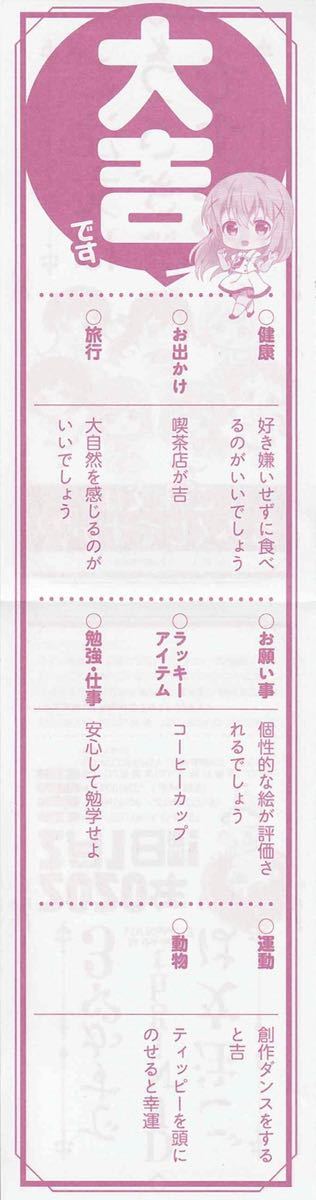 大吉
です
○健康
好き嫌いせずに食べ
るのがいいでしょう
○お出かけ
喫茶店が吉
○旅行
大自然を感じるのが
いいでしょう
○お願い事
個性的な絵が評価さ
れるでしょう
○ラッキー
アイテム
コーヒーカップ
○勉強・仕事
安心して勉学せよ
○運動
創作ダンスをする
と吉
○動物
ティッピーを頭に
のせると幸運